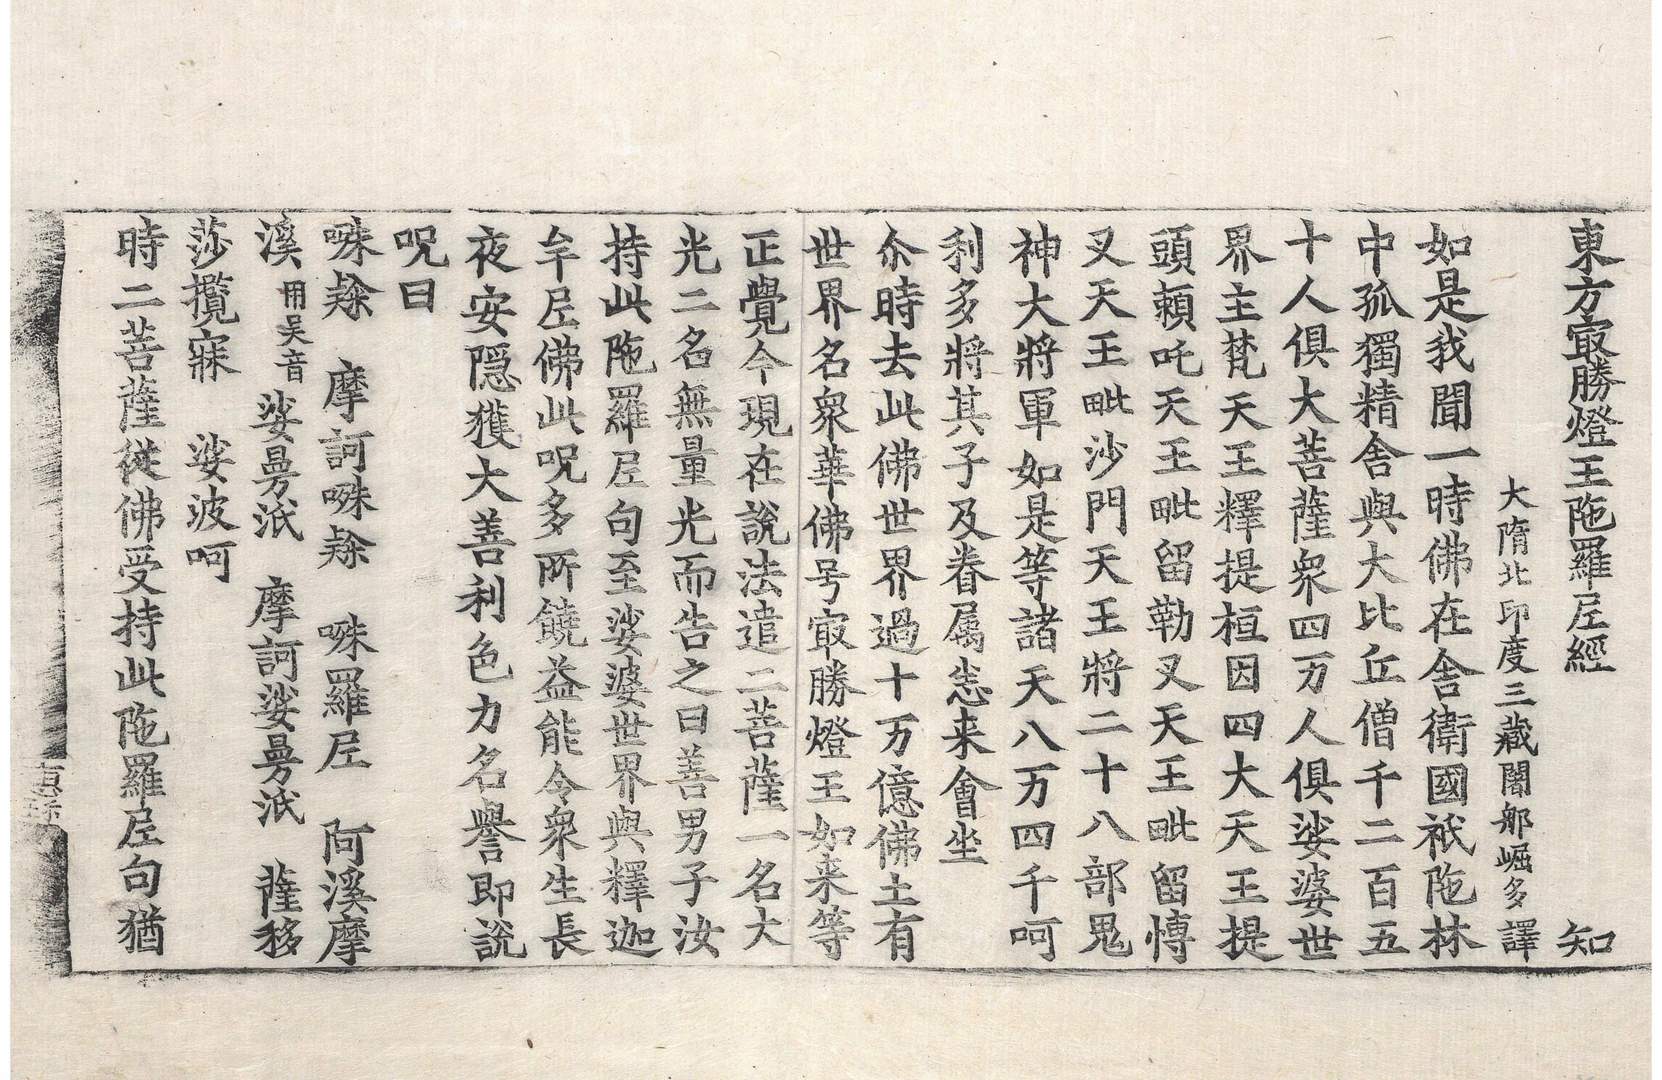 東方㝡勝燈王陁羅尼經 知
大隋北印度三藏闍那崛多譯
如是我聞一時佛在舍衛國祇陁林
中孤獨精舍與大比丘僧千二百五
十人俱大菩薩衆四万人俱娑婆世
界主梵天王釋提桓因四大天王提
頭頼吒天王毗留勒叉天王毗留愽
叉天王毗沙門天王將二十八部鬼
神大將軍如是等諸天八万四千呵
利多將其子及眷属𢘻来會坐
尒時去此佛世界過十万億佛土有
世界名衆華佛号㝡勝燈王如来等
正覺今現在說法遣二菩薩一名大
光二名無量光而告之曰善男子汝
持此陁羅尼句至娑婆世界與釋迦
牟尼佛此呪多所饒益能令衆生長
夜安隠獲大善利色力名譽即說
呪曰
㖨𨅖 摩訶㖨𨅖 㖨羅尼 阿溪摩
溪用吴音 娑曼泜 摩訶娑曼泜 薩移
莎攬寐 娑波呵
時二菩薩從佛受持此陁羅尼句猶